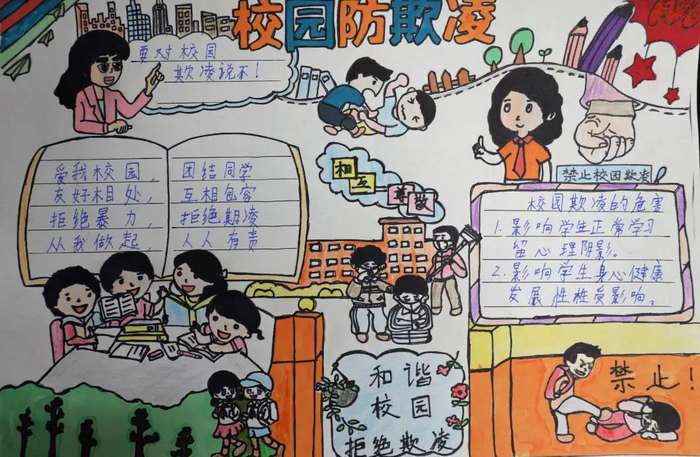 校园防欺凌
要对校园
欺凌说不！
爱我校园，
友好相处，
拒绝暴力，
从我做起，
团结同学
互相包容
拒绝期凌
人人有责
相互
尊敬
禁止校园欺凌
校园欺凌的危害
1. 影响学生正常学习
留心理阴影。
2. 影响学生身心健康
发展性格受影响。
和谐
校园
拒绝欺凌
禁止！